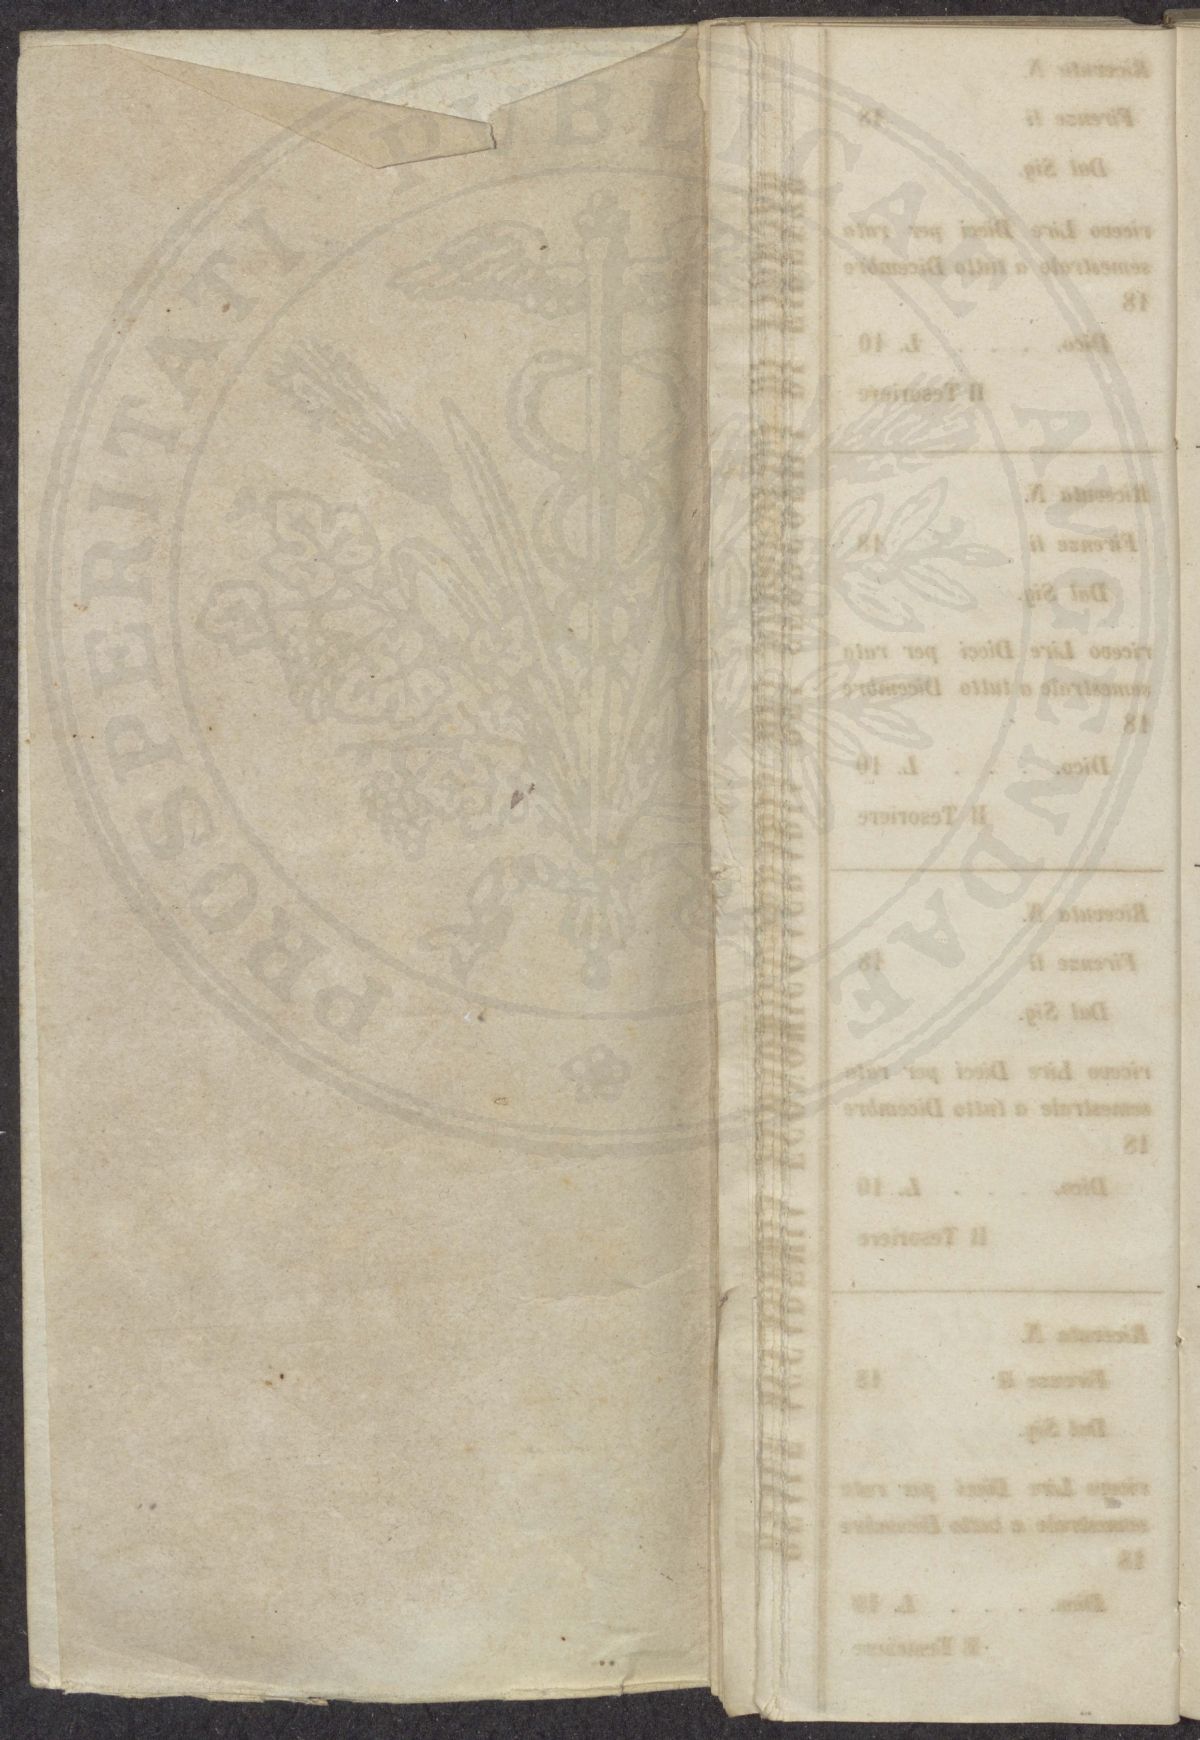 PROSPERITATI PUBLICAE AVGENDAE
Ricevuta N.
Firenze li 18
Dal Sig.
ricevo Lire Dieci per rata
semestrale a tutto Dicembre
18
Dico. . . . . L. 10
Il Tesoriere
Ricevuta N.
Firenze li 18
Dal Sig.
ricevo Lire Dieci per rata
semestrale a tutto Dicembre
18
Dico. . . . L. 10
Il Tesoriere
Ricevuta N.
Firenze li 18
Dal Sig.
ricevo Lire Dieci per rata
semestrale a tutto Dicembre
18
Dico. . . . L. 10
Il Tesoriere
Ricevuta N.
Firenze li 18
Dal Sig.
ricevo Lire Dieci per rata
semestrale a tutto Dicembre
18
Dico. . . . L. 10
Il Tesoriere